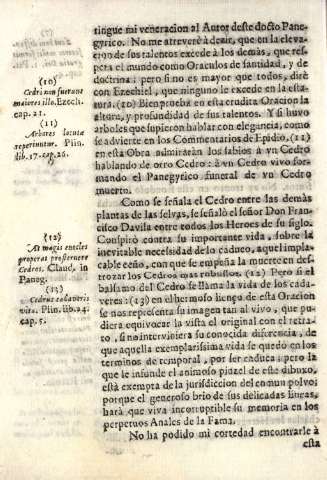 tingue mi veneracion al Autor deste docto Pane-
gyrico. No me atreverè à dezir, que en la eleva-
cion de sus talentos excede à los demàs, que res-
peta el mundo como Oraculos de santidad, y de
doctrina; pero si no es mayor que todos, dirè
con Ezechiel, que ninguno le excede en la esta-
tura. (10) Bien prueba en esta erudita Oracion la
altura, y profundidad de sus talentos. Y si huvo
arboles que supieron hablar con elegancia, como
se advierte en los Commentarios de Epidio, (11)
en esta Obra admiraràn los sabios à vn Cedro
hablando de otro Cedro: à vn Cedro vivo for-
mando el Panegyrico funeral de vn Cedro
muerto.
Como se señala el Cedro entre las demàs
plantas de las selvas, se señalò el señor Don Fran-
cisco Davila entre todos los Heroes de su siglo.
Conspirò contra su importante vida, sobre la
inevitable necessidad de lo caduco, aquel impla-
cable ceño, con que se empeña la muerte en des-
trozar los Cedros mas robustos. (12) Pero si el
balsamo del Cedro se llama la vida de los cada-
veres: (13) en el hermoso lienço de esta Oracion
se nos representa su imagen tan al vivo, que pu-
diera equivocar la vista el original con el retra-
to, si no interviniera su conocida diferencia, de
que aquella exemplarissima vida se quedò en los
terminos de temporal, por ser caduca; pero la
que le infunde el animoso pinzel de este dibuxo,
està exempta de la jurisdiccion del comun polvo;
porque el generoso brio de sus delicadas lineas,
harà que viva incorruptible su memoria en los
perpetuos Anales de la Fama.
No ha podido mi cortedad encontrarle à
esta
(10)
Cedri non fuerunt
maiores illo. Ezech.
cap. 21.
(11)
Arbores locuta
reperiuntur. Plin.
lib. 17. cap. 26.
(12)
At magis enseles
properas prosternere
Cedros. Claud. in
Paneg.
(13)
Cedrus cadaveris
vita. Plin. lib. 24.
cap. 5.